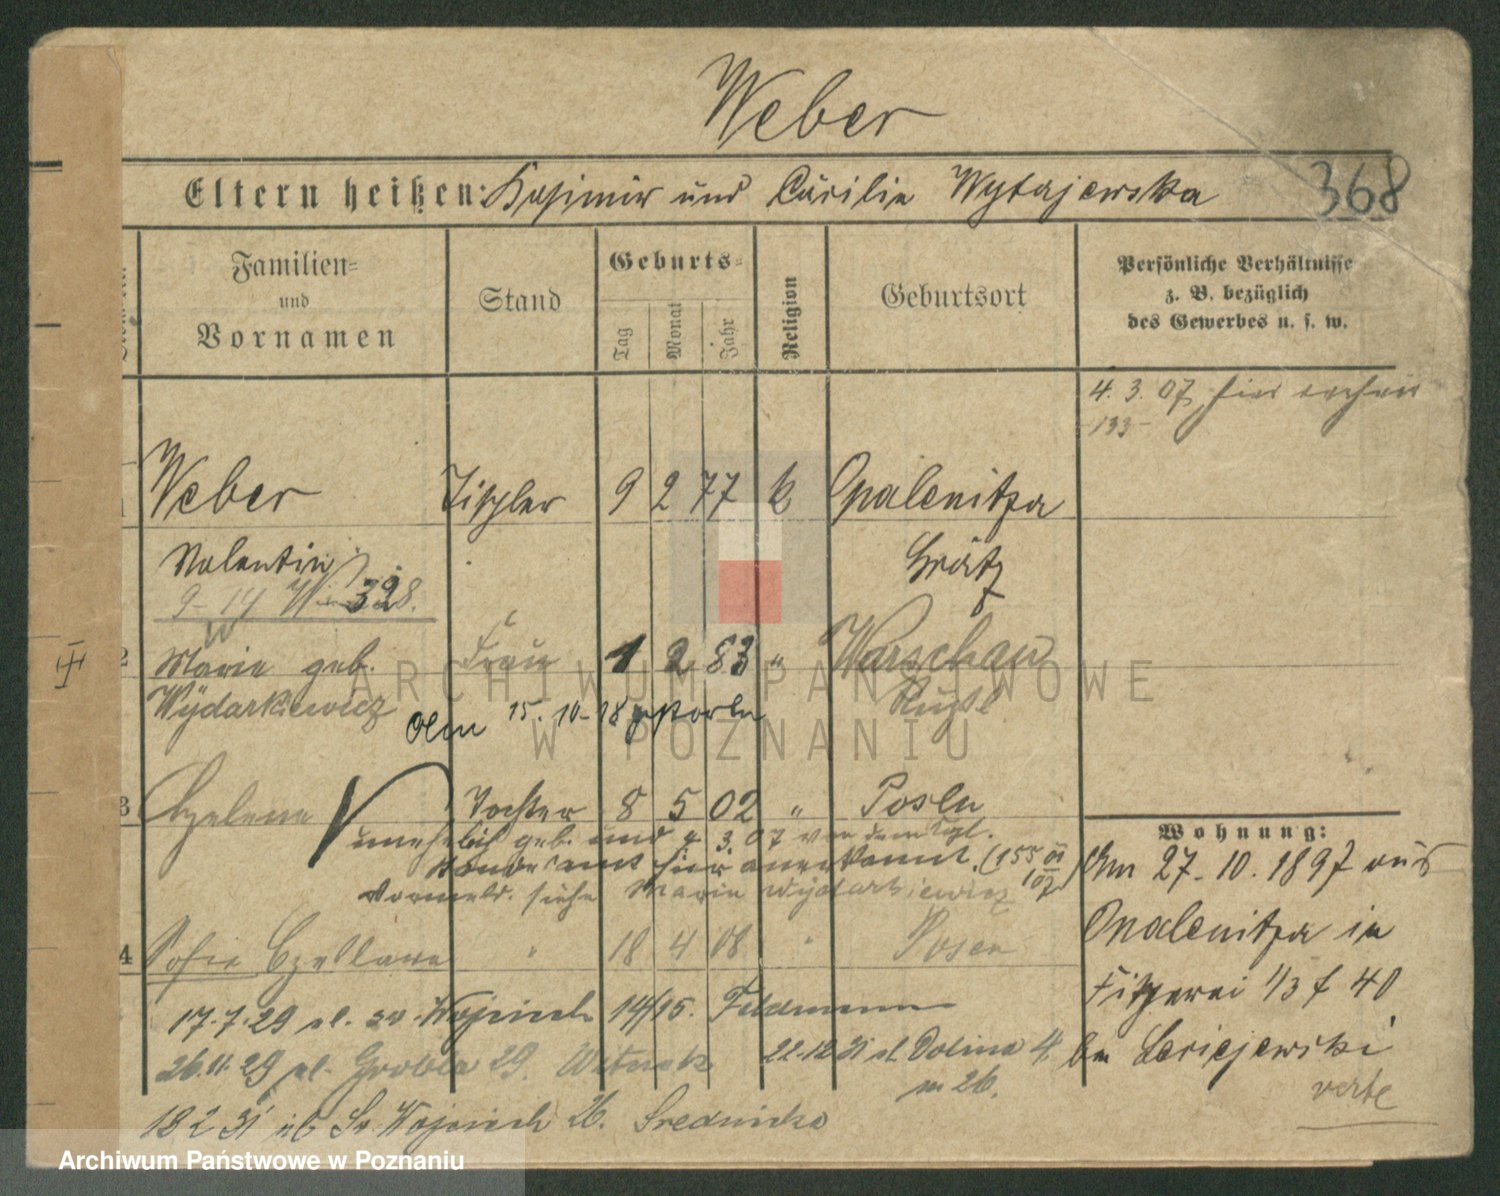 Weber
368
Eltern heißen: Kasimir und Cäcilie Wytajewska
Familien=
und
Vornamen
Stand
Geburts=
Tag
Monat
Jahr
Religion
Geburtsort
Persönliche Verhältnisse
z. B. bezüglich
des Gewerbes u. s. w.
4. 3. 07 hier
133
1 Weber Tischler 9 2 77 k Opalenitza
Valentin Grätz
328.
2 Marie geb. Frau 1 2 83 " Warschau
Wydarkiewicz Rußl
15. 10. 18
3 Helene Tochter 8 5 02 " Posen
unehelich geb. und 4. 3. 07 von dem
Standesamt hier anerkannt. (155 01/107)
Vormels. siehe Marie Wydarkiewicz
4 Sofie " 18 4 08 " Posen
17.7.29 ul. św. Wojciech 14/15. Feldmann
26.11.29 ul. Grobla 29. 22.12.31 ul. Dolina 4
m 26.
18 2 31 ul Św. Wojciech 26. Srednicka
Wohnung:
Am 27. 10. 1897 aus
Opalenitza in
1/3 f 40
bei
verte
ARCHIWUM PAŃSTWOWE
W POZNANIU
Archiwum Państwowe w Poznaniu